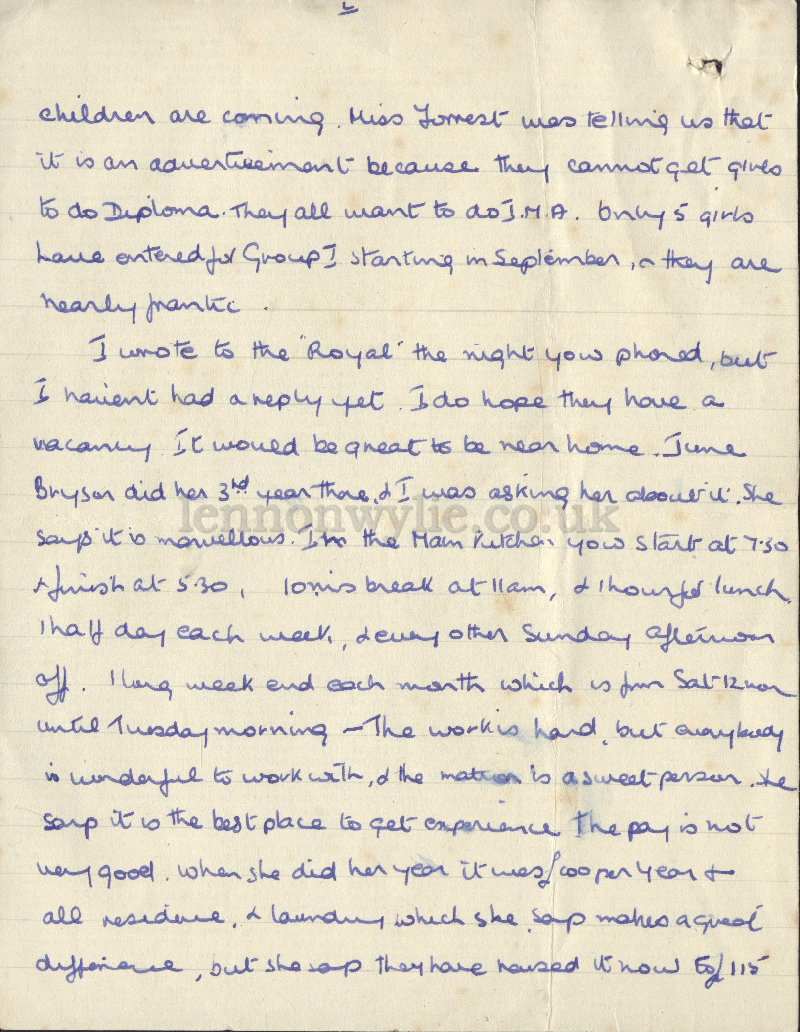 children are coming. Miss Forrest was telling us that
it is an advertisement because they cannot get girls
to do Diploma. They all want to do I.M.A. Only 5 girls
have entered for Group I starting in September, & they are
nearly frantic.
I wrote to the "Royal" the night you phoned, but
I havent had a reply yet. I do hope they have a
vacancy It would be great to be near home. June
Bryson did her 3rd year there, & I was asking her about it. She
lennonwylie.co.uk
says it is marvellous. In the Main Kitchen you start at 7.30
& finish at 5.30, 10 mis break at 11am, & 1 hour for lunch.
1 half day each week, & every other Sunday afternoon
off. 1 long week end each month which is from Sat 12 noon
until Tuesday morning - The work is hard, but everybody
is wonderful to work with, & the matron is a sweet person. She
says it is the best place to get experience The pay is not
very good. When she did her year it was £100 per year &
all residence, & laundry which she says makes a great
difference, but she says they have raised it now to £115